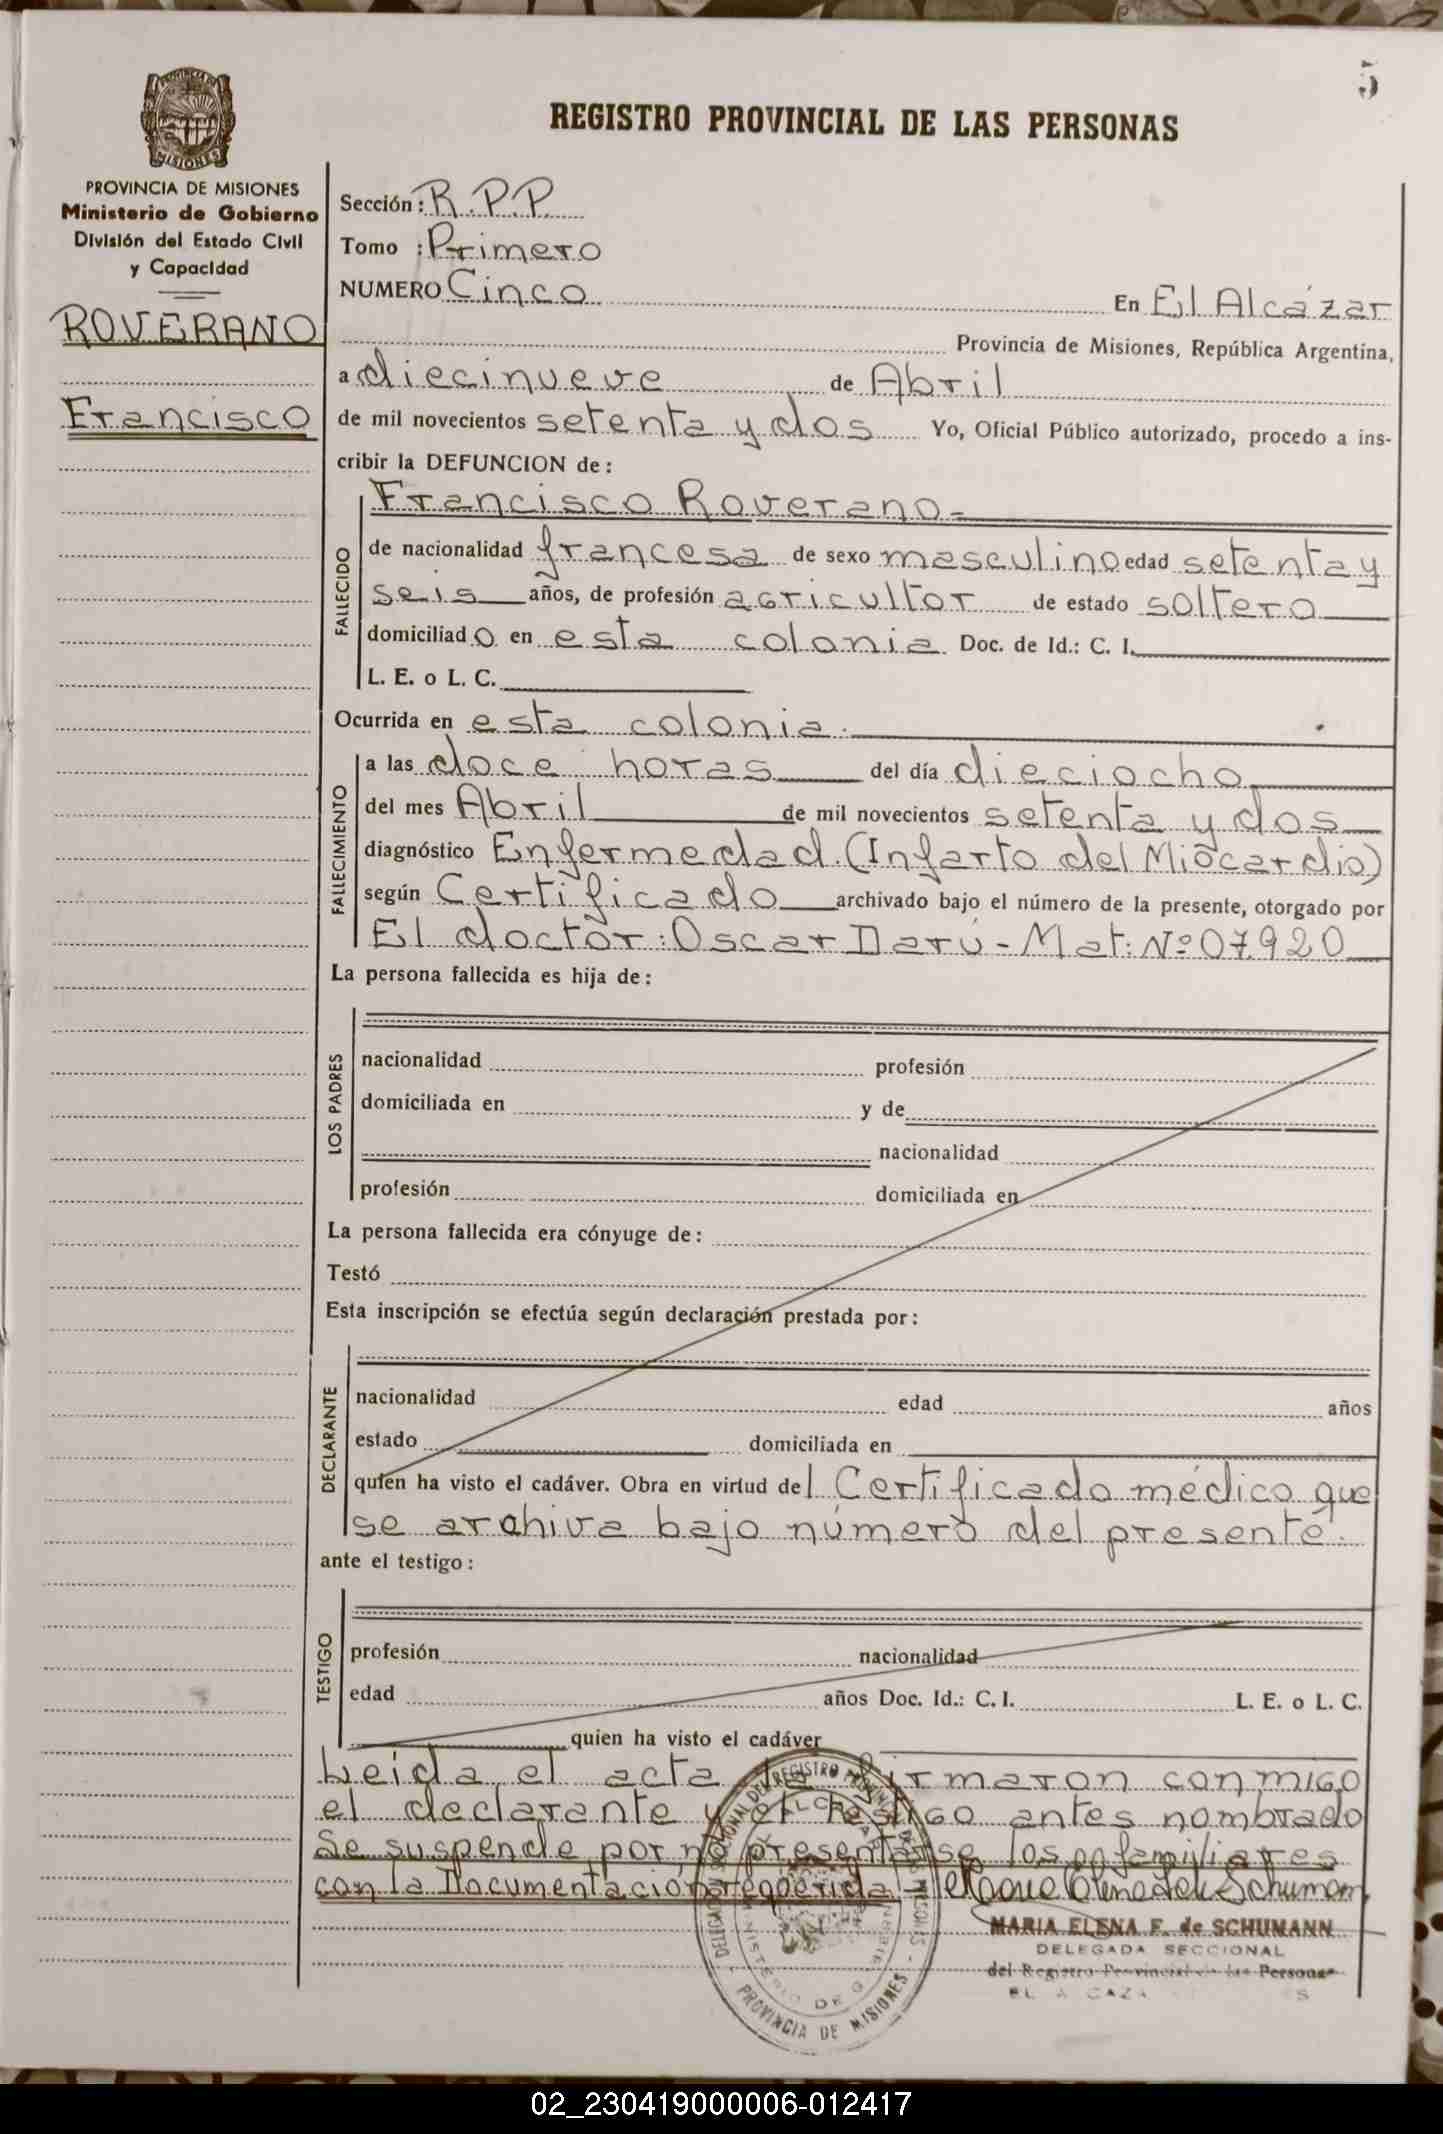 5
PROVINCIA DE
MISIONES
REGISTRO PROVINCIAL DE LAS PERSONAS
PROVINCIA DE MISIONES
Ministerio de Gobierno
División del Estado Civil
y Capacidad
ROVERANO
Francisco
Sección: R.P.P.
Tomo : Primero
NUMERO Cinco En El Alcázar
Provincia de Misiones, República Argentina,
a diecinueve de Abril
de mil novecientos setenta y dos Yo, Oficial Público autorizado, procedo a ins-
cribir la DEFUNCION de:
FALLECIDO
Francisco Roverano-
de nacionalidad francesa de sexo masculino edad setenta y
seis años, de profesión agricultor de estado soltero
domiciliado en esta colonia Doc. de Id.: C. I.
L. E. o L. C.
Ocurrida en esta colonia.
FALLECIMIENTO
a las doce horas del día dieciocho
del mes Abril de mil novecientos setenta y dos
diagnóstico Enfermedad.(Infarto del Miocardio)
según Certificado archivado bajo el número de la presente, otorgado por
El doctor: Oscar Darú-Mat: Nº 07920
La persona fallecida es hija de:
LOS PADRES
nacionalidad profesión
domiciliada en y de
nacionalidad
profesión domiciliada en
La persona fallecida era cónyuge de:
Testó
Esta inscripción se efectúa según declaración prestada por:
DECLARANTE
nacionalidad edad años
estado domiciliada en
quien ha visto el cadáver. Obra en virtud del Certificado médico que
se archiva bajo número del presente.
ante el testigo:
TESTIGO
profesión nacionalidad
edad años Doc. Id.: C. I. L. E. o L. C.
quien ha visto el cadáver
Leída el acta la firmaron conmigo
el declarante y el testigo antes nombrado
Se suspende por no presentarse los familiares
con la Documentación requerida
MARIA ELENA F. de SCHUMANN
DELEGADA SECCIONAL
del Registro Provincial de las Personas
EL ALCAZAR
DELEGACION SECCIONAL DEL REGISTRO PROVINCIAL DE LAS PERSONAS
EL ALCAZAR
MINISTERIO DE GOBIERNO
PROVINCIA DE MISIONES
02_230419000006-012417